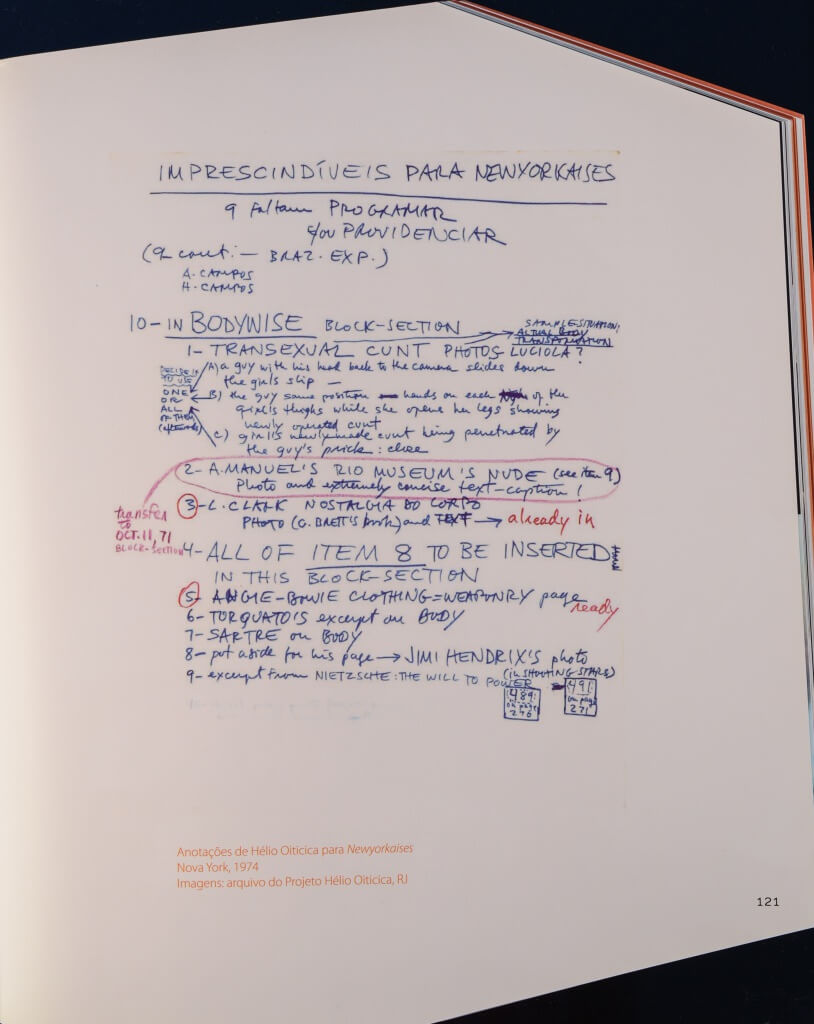 IMPRESCINDÍVEIS PARA NEWYORKAISES
q faltam PROGRAMAR
e/ou PROVIDENCIAR
(9 cont: — BRAZ. EXP.)
A. CAMPOS
H. CAMPOS
10- IN BODYWISE BLOCK-SECTION
SAMPLE SITUATION:
ACTUAL BODY
TRANSFORMATION
1- TRANSEXUAL CUNT PHOTOS-LUCIOLA?
A) a guy with his head back to the camera slides down
the girl's slip —
DECIDE IF
TO USE
ONE
OR
ALL
OF THEM
(afterwards)
B) the guy same position — hands on each of the
girl's thighs while she opens her legs showing
newly operated cunt
C) girl's newly-made cunt being penetrated by
the guy's prick: close
2- A. MANUEL'S RIO MUSEUM'S NUDE (see item 9)
photo and extremely concise text-caption!
3- L. CLARK NOSTALGIA DO CORPO
PHOTO (G. BRETT'S book) and TEXT → already in
transfer
to
OCT. 11, 71
BLOCK-SECTION
4- ALL OF ITEM 8 TO BE INSERTED
IN THIS BLOCK-SECTION
5- ANGIE-BOWIE CLOTHING=WEAPONRY page ready
6- TORQUATO'S excerpt on BODY
7- SARTRE on BODY
8- put aside for his page → JIMI HENDRIX'S photo
(in SHOOTING STARS)
9- excerpt from NIETZSCHE: THE WILL TO POWER
489:
on page
270
491:
on page
271
Anotações de Hélio Oiticica para Newyorkaises
Nova York, 1974
Imagens: arquivo do Projeto Hélio Oiticica, RJ
121